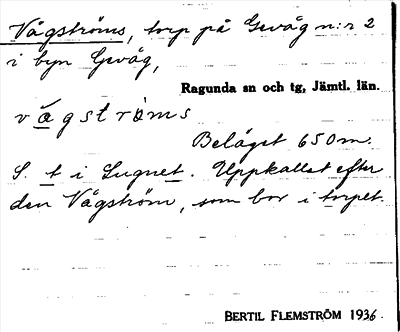 Vågströms, torp på Gevåg n:r 2
i byn Gevåg,
Ragunda sn och tg, Jämtl. län.
vågströms
Beläget 650m.
S. t i Lugnet. Uppkallat efter
den Vågström, som bor i torpet.
BERTIL FLEMSTRÖM 1936.